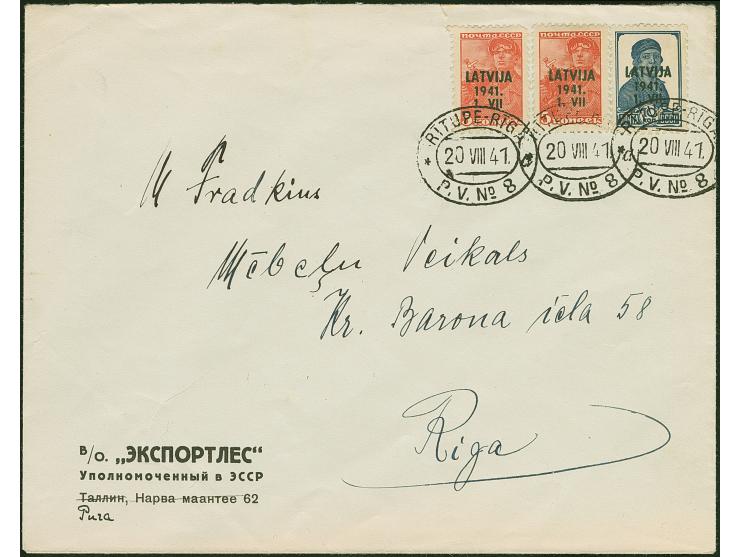 ПОЧТА СССР ПОЧТА СССР
LATVIJA LATVIJA LATVIJA
1941. 1941. 1941.
1. VII 1. VII 1. VII
RITUPE-RIGA
20 VIII 41. 20 VIII 41. 20 VIII 41.
P. V. № 8 P. V. № 8 P. V. № 8
M Fradkins
Mēbeļu Veikals
Kr. Barona iela 58
Riga
В/О. „ЭКСПОРТЛЕС“
Уполномоченный в ЭССР
Таллин, Нарва маантее 62
Рига